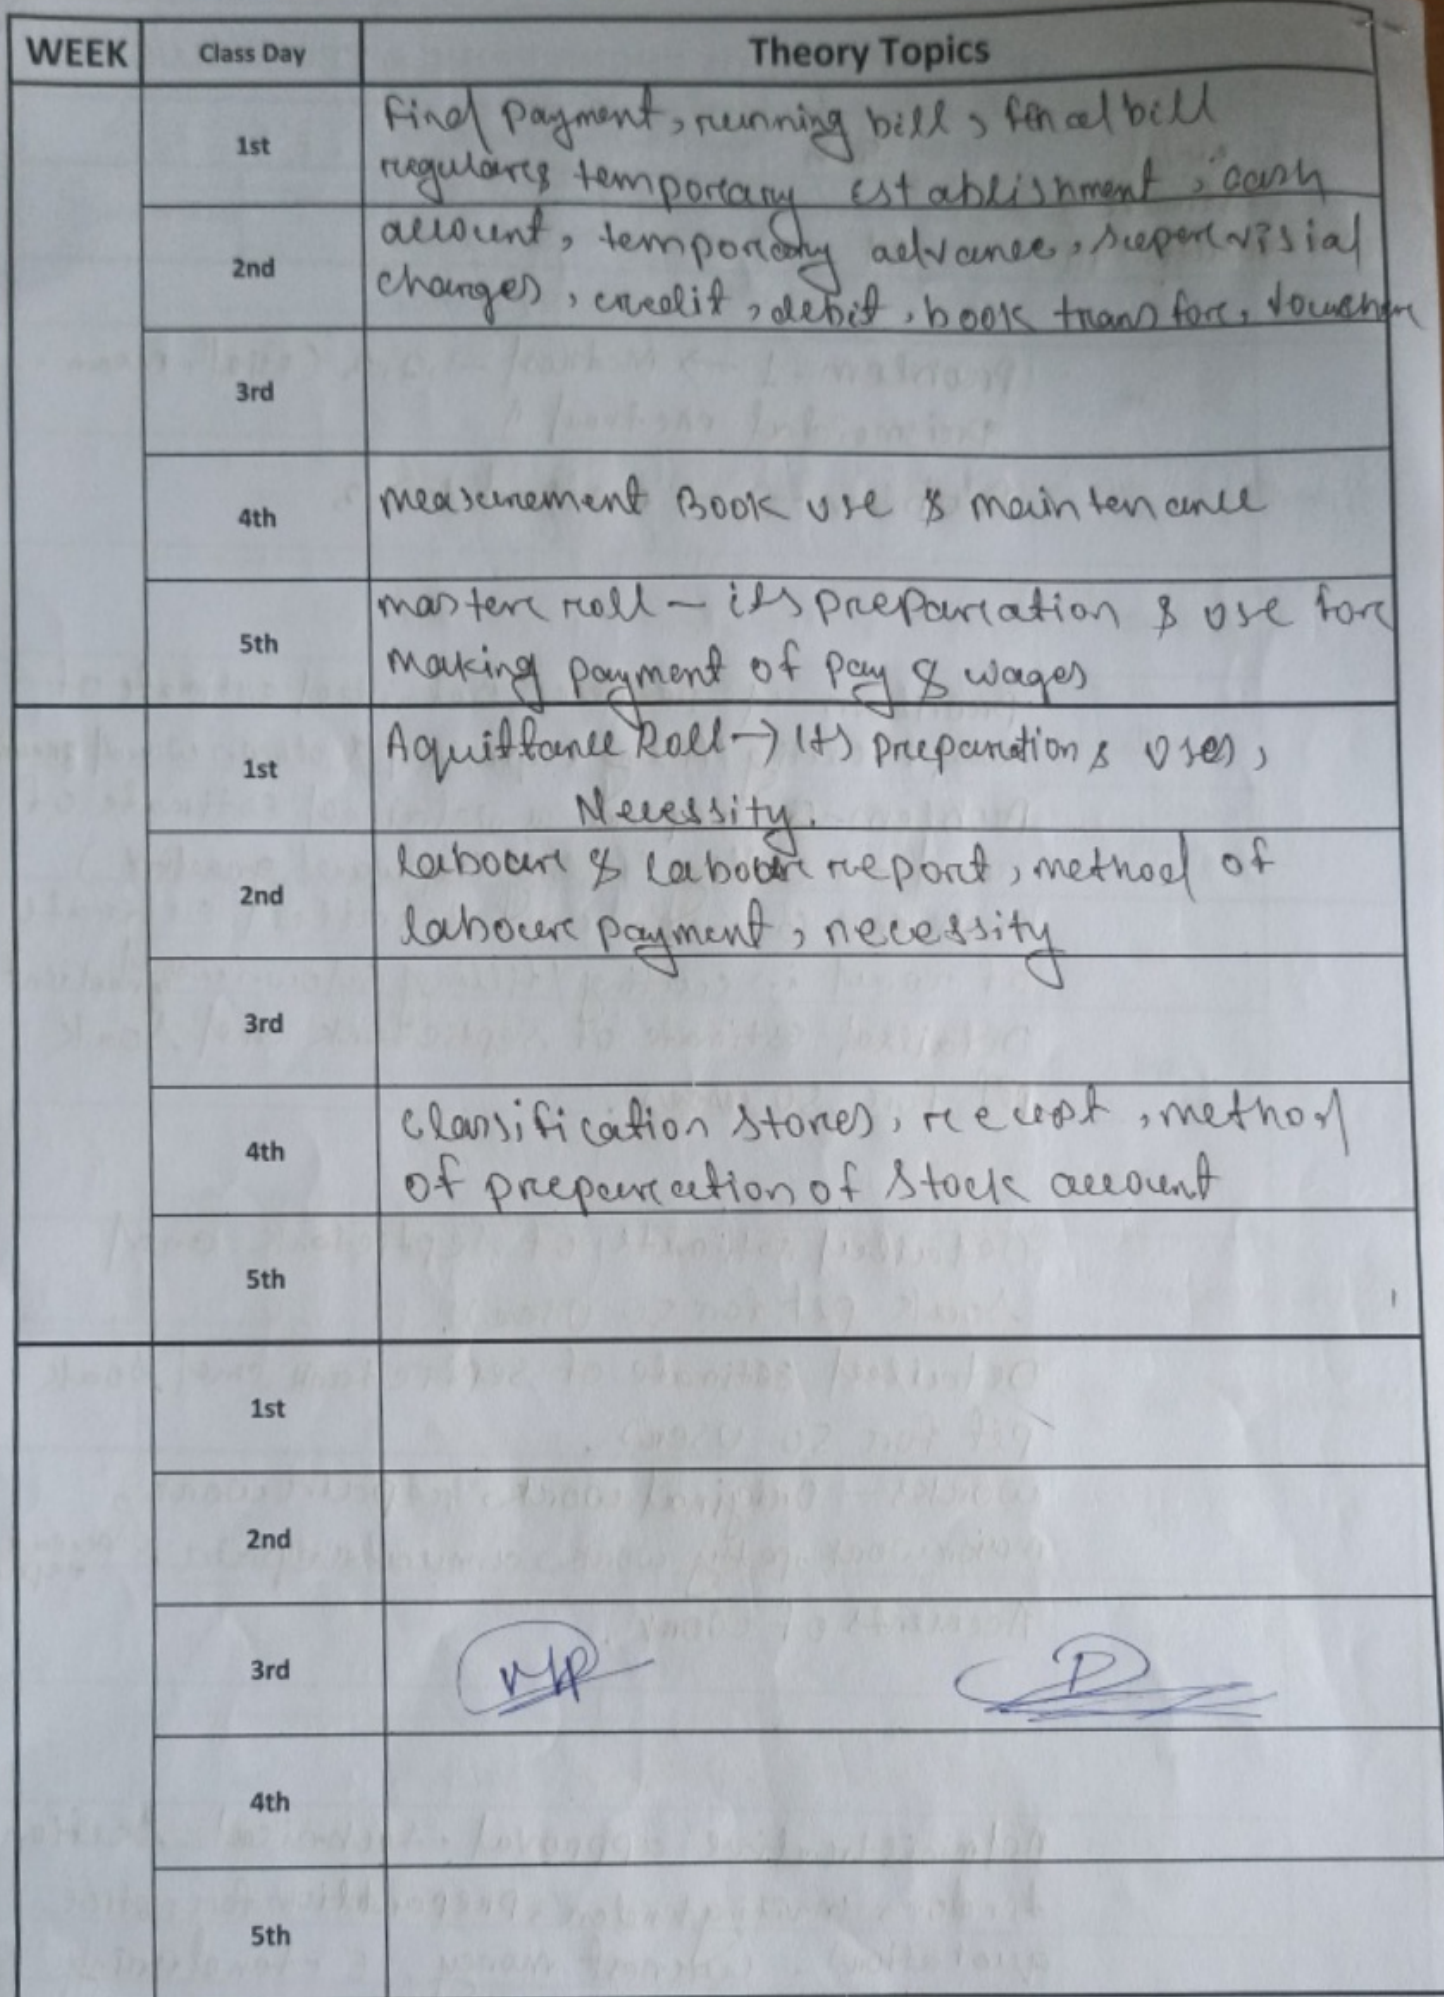 WEEK Class Day Theory Topics
1st
Final payment, running bill, final bill
regulars temporary establishment, cash
2nd
account, temporary advance, supervisial
charges, credit, debit, book transfore, voucher
3rd
4th
measurement Book use & maintenance
5th
master roll - its preparation & use fore
making payment of pay & wages
1st
Aquittance Roll → Its preparation & uses,
Necessity.
2nd
laboure & laboure report, method of
laboure payment, necessity
3rd
4th
classification stores, receipt, method
of preparation of stock account
5th
1st
2nd
3rd
4th
5th